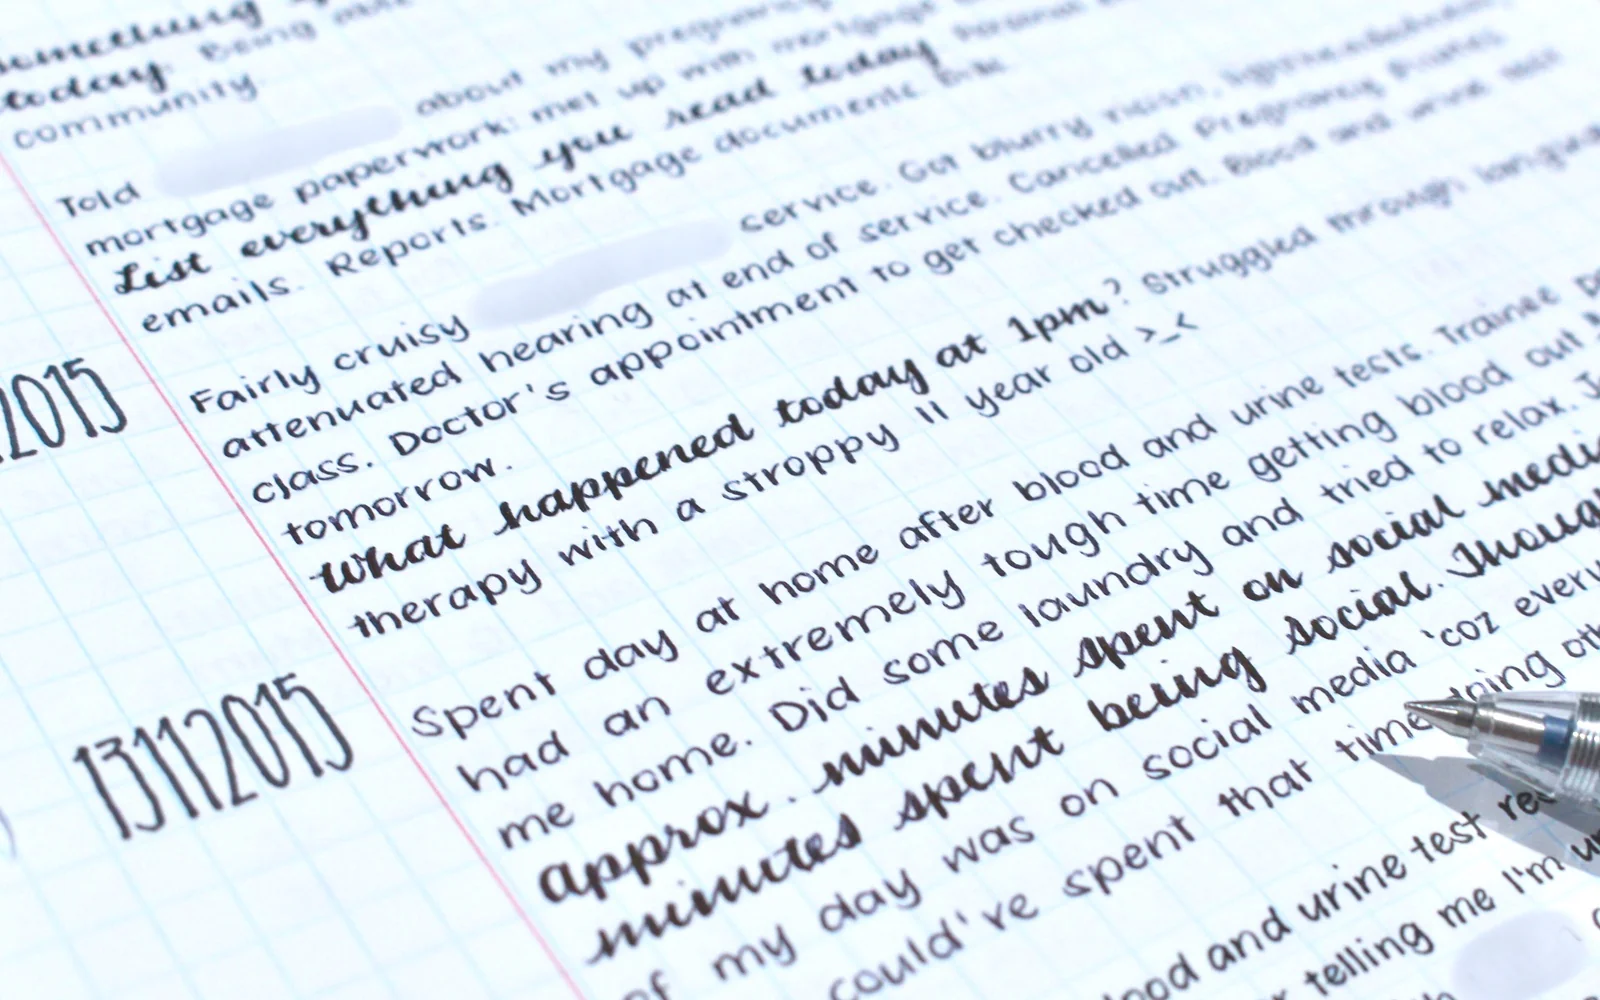 something
today. Being
community
Told about my
mortgage paperwork: met up with mortgage
List everything you read today. Personal
emails. Reports. Mortgage documents.
2015
Fairly cruisy service. Got blurry vision, lightheadedness,
attenuated hearing at end of service. Cancelled Pregnancy Pilates
class. Doctor's appointment to get checked out. Blood and urine tests
tomorrow.
What happened today at 1pm? Struggled through language
therapy with a stroppy 11 year old >_<
13112015
Spent day at home after blood and urine tests. Trainee
had an extremely tough time getting blood out
me home. Did some laundry and tried to relax.
Approx. minutes spent on social media
minutes spent being social.
of my day was on social media 'coz every
could've spent that time doing
blood and urine test
telling me I'm